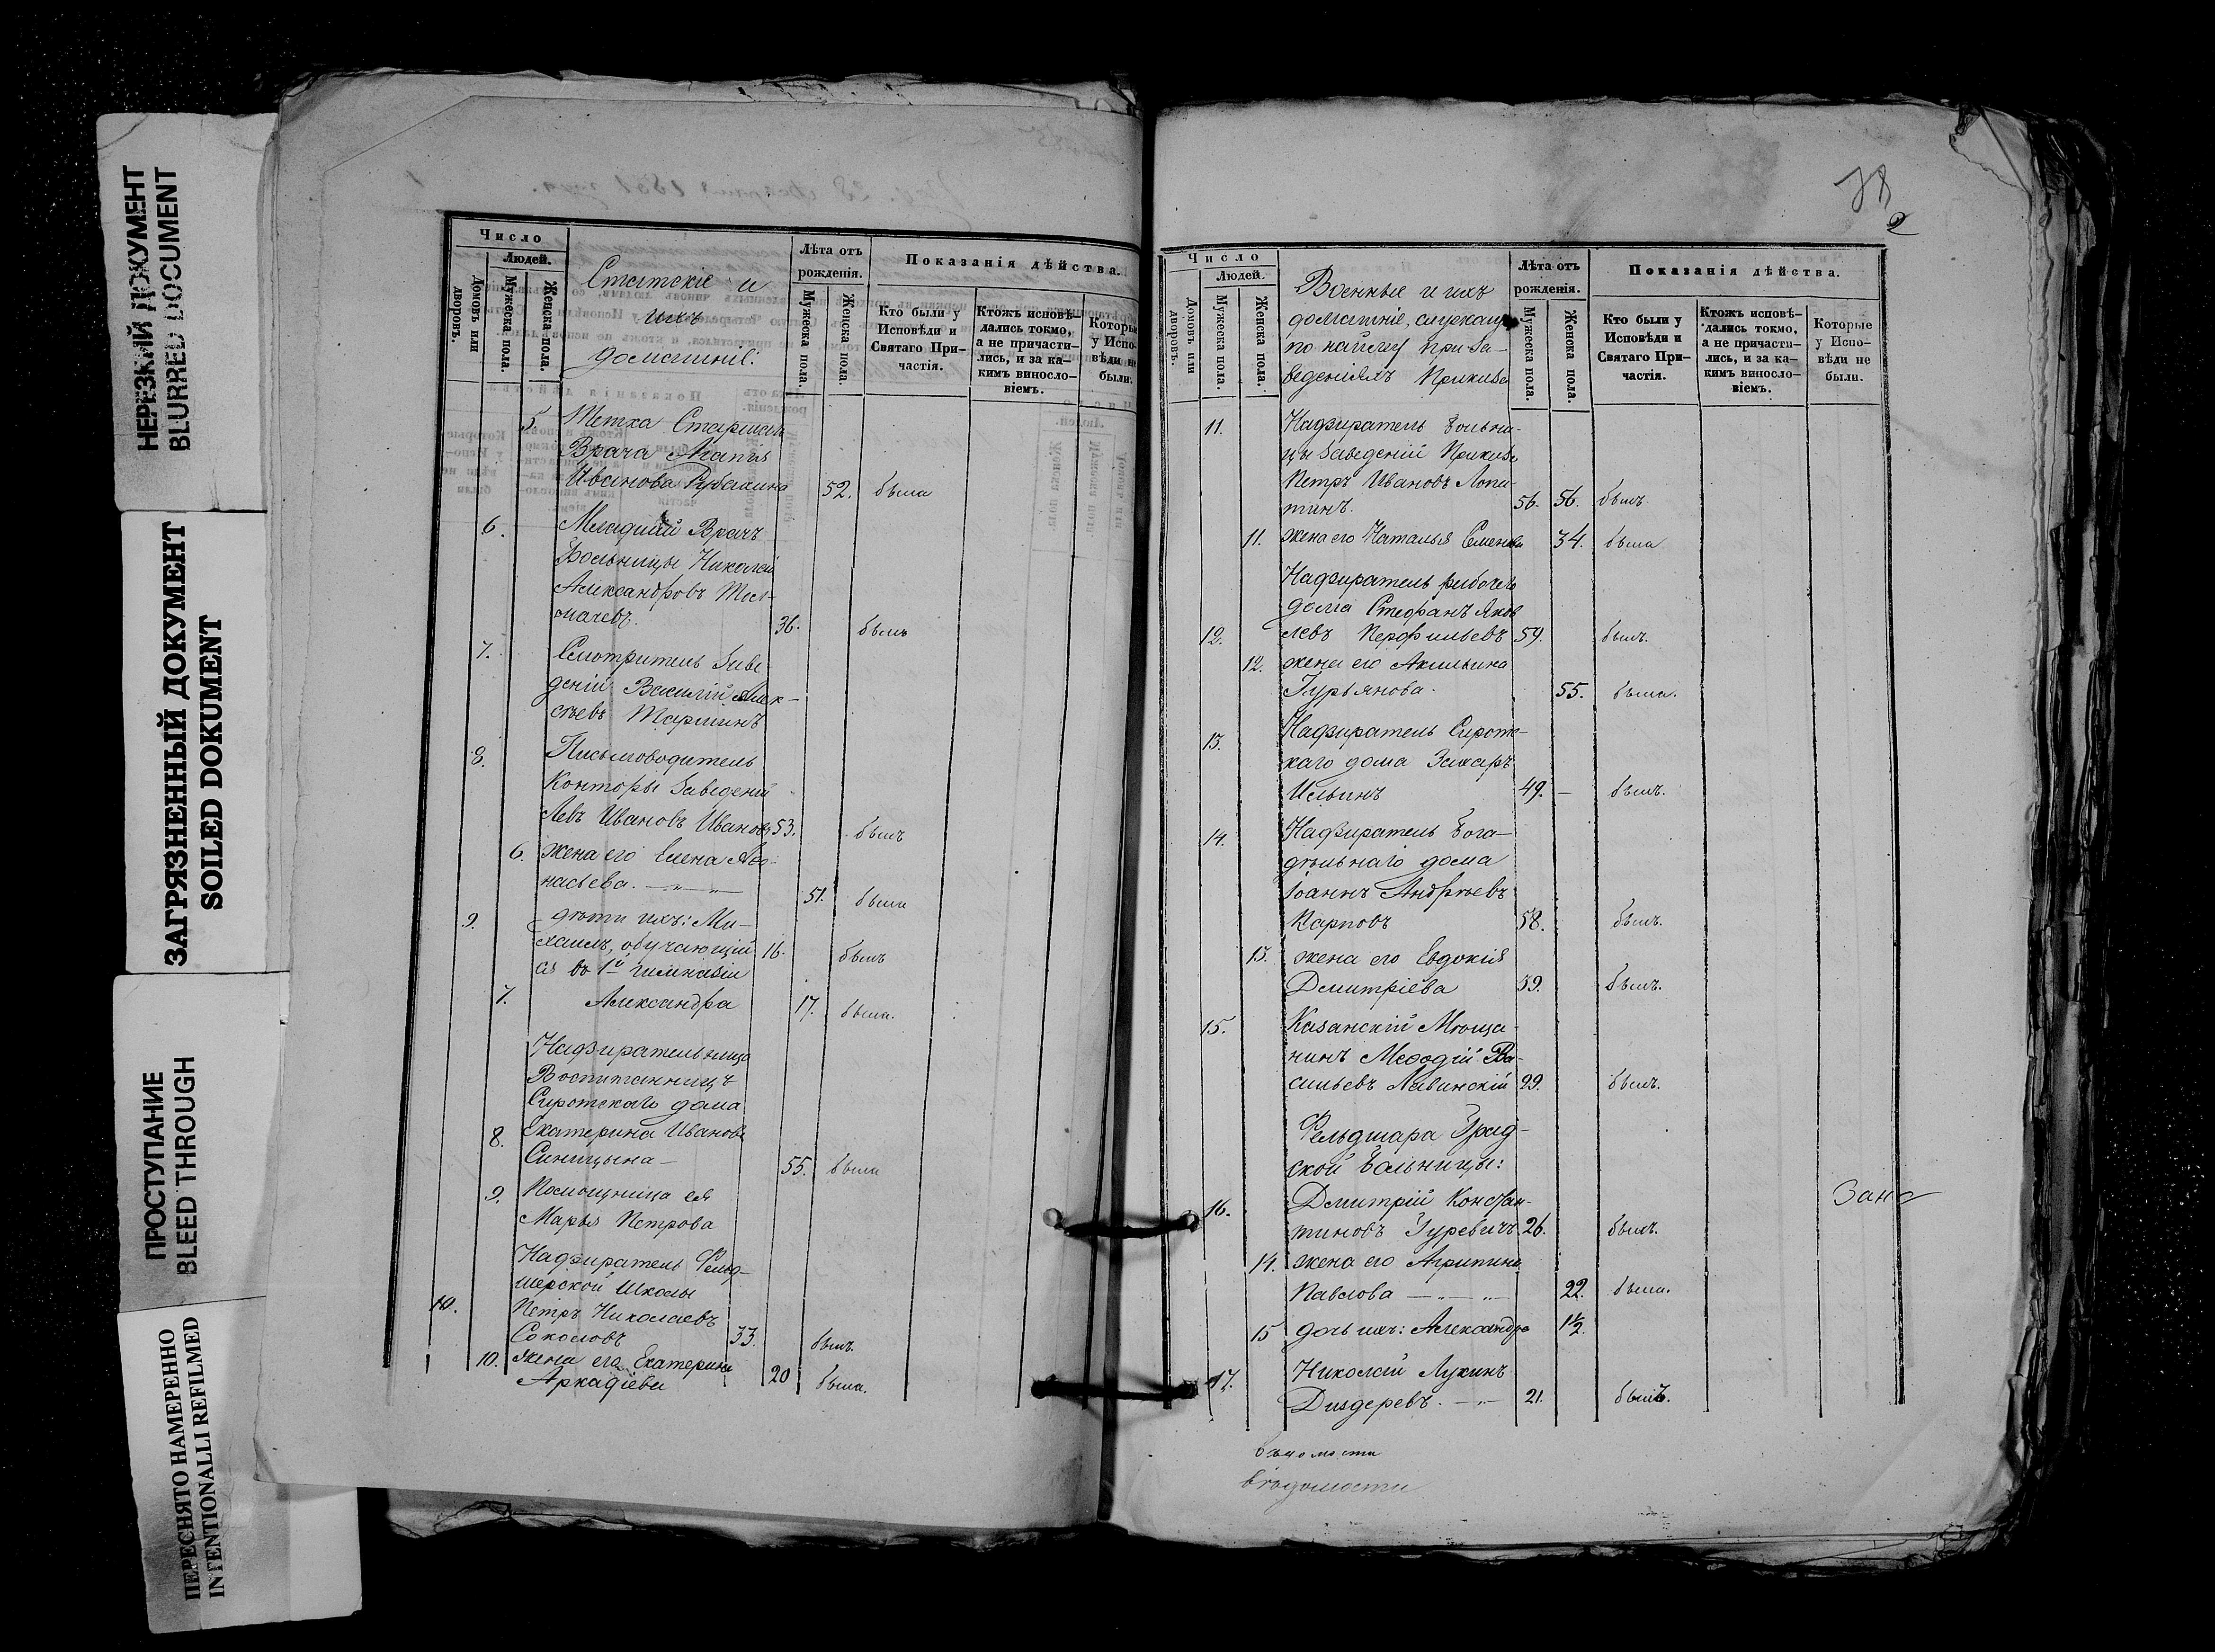 НЕРЕЗКИЙ ДОКУМЕНТ
BLURRED DOCUMENT
ЗАГРЯЗНЕННЫЙ ДОКУМЕНТ
SOILED DOKUMENT
ПРОСТУПАНИЕ
BLEED THROUGH
ПЕРЕСНЯТО НАМЕРЕННО
INTENTIONALLI REFILMED
Число
Людей.
Домовъ или дворовъ.
Мужеска пола.
Женска пола.
Статскіе и
ихъ
домашніе:
Лѣта отъ
рожденія.
Мужеска пола.
Женска пола.
Показанія дѣйства.
Кто были у
Исповѣди и
Святаго При-
частія.
Ктожъ исповѣ-
дались токмо,
а не причасти-
лись, и за ка-
кимъ винословіемъ.
Которые
у Испо-
вѣди не
были.
5. Тетка Старшаго
Врача Агапія
Иванова 52. была
6. Младшій Врачъ
Больницы Николай
Александровъ Тол-
мачевъ. 36. былъ
7. Смотритель Заве-
деній Василій Алек-
сѣевъ
8. Письмоводитель
Конторы Заведеній
Левъ Ивановъ Ивановъ 53. былъ
6. жена его Елена Аѳа-
насьева. 51. была
9. дѣти ихъ: Ми-
хаилъ, обучающій
ся въ 1й гимназіи 16. былъ
7. Александра 17. была.
Надзирательница
Воспитанницъ
Сиротскаго дома
8. Екатерина Иванова
Синицына 55. была
9. Помощница ея
Марья Петрова
Надзиратель Фельд-
шерской Школы
10. Петръ Николаевъ
Соколовъ 33. былъ.
10. жена его Екатерина
Аркадіева 20 была.
78
2
Число
Людей.
Домовъ или дворовъ.
Мужеска пола.
Женска пола.
Военные и ихъ
домашніе, служащ
по найму при за-
веденіяхъ Приказа
Лѣта отъ
рожденія.
Мужеска пола.
Женска пола.
Показанія дѣйства.
Кто были у
Исповѣди и
Святаго При-
частія.
Ктожъ исповѣ-
дались токмо,
а не причасти-
лись, и за ка-
кимъ винословіемъ.
Которые
у Испо-
вѣди не
были.
11. Надзиратель больни-
цы заведеній Приказа
Петръ Ивановъ Лопа-
тинъ. 56. 56. былъ.
11. жена его Наталья Семенова 34. была
Надзиратель рабочаго
дома Стефанъ Яков
12. левъ Перфильевъ 59. былъ.
12. жена его Акилина
Гурьянова. 55. была.
13. Надзиратель Сирот-
каго дома Захаръ
Ильинъ 49. — былъ.
14. Надзиратель Бога-
дѣльнаго дома
Іоаннъ Андреевъ
Карповъ 58. былъ.
13. жена его Евдокія
Дмитріева 39. былъ.
15. Казанскій Мѣща-
нинъ Меѳодій Ва-
сильевъ 29. былъ.
Фельдшара Град-
ской Больницы:
16. Дмитрій Констан-
тиновъ Гуревичъ 26. былъ.
14. жена его Агрипина
Павлова 22. была.
15 дочь ихъ: Александра 1½.
17. Николай Лукинъ
21. былъ.
вѣдомости
вѣдомости